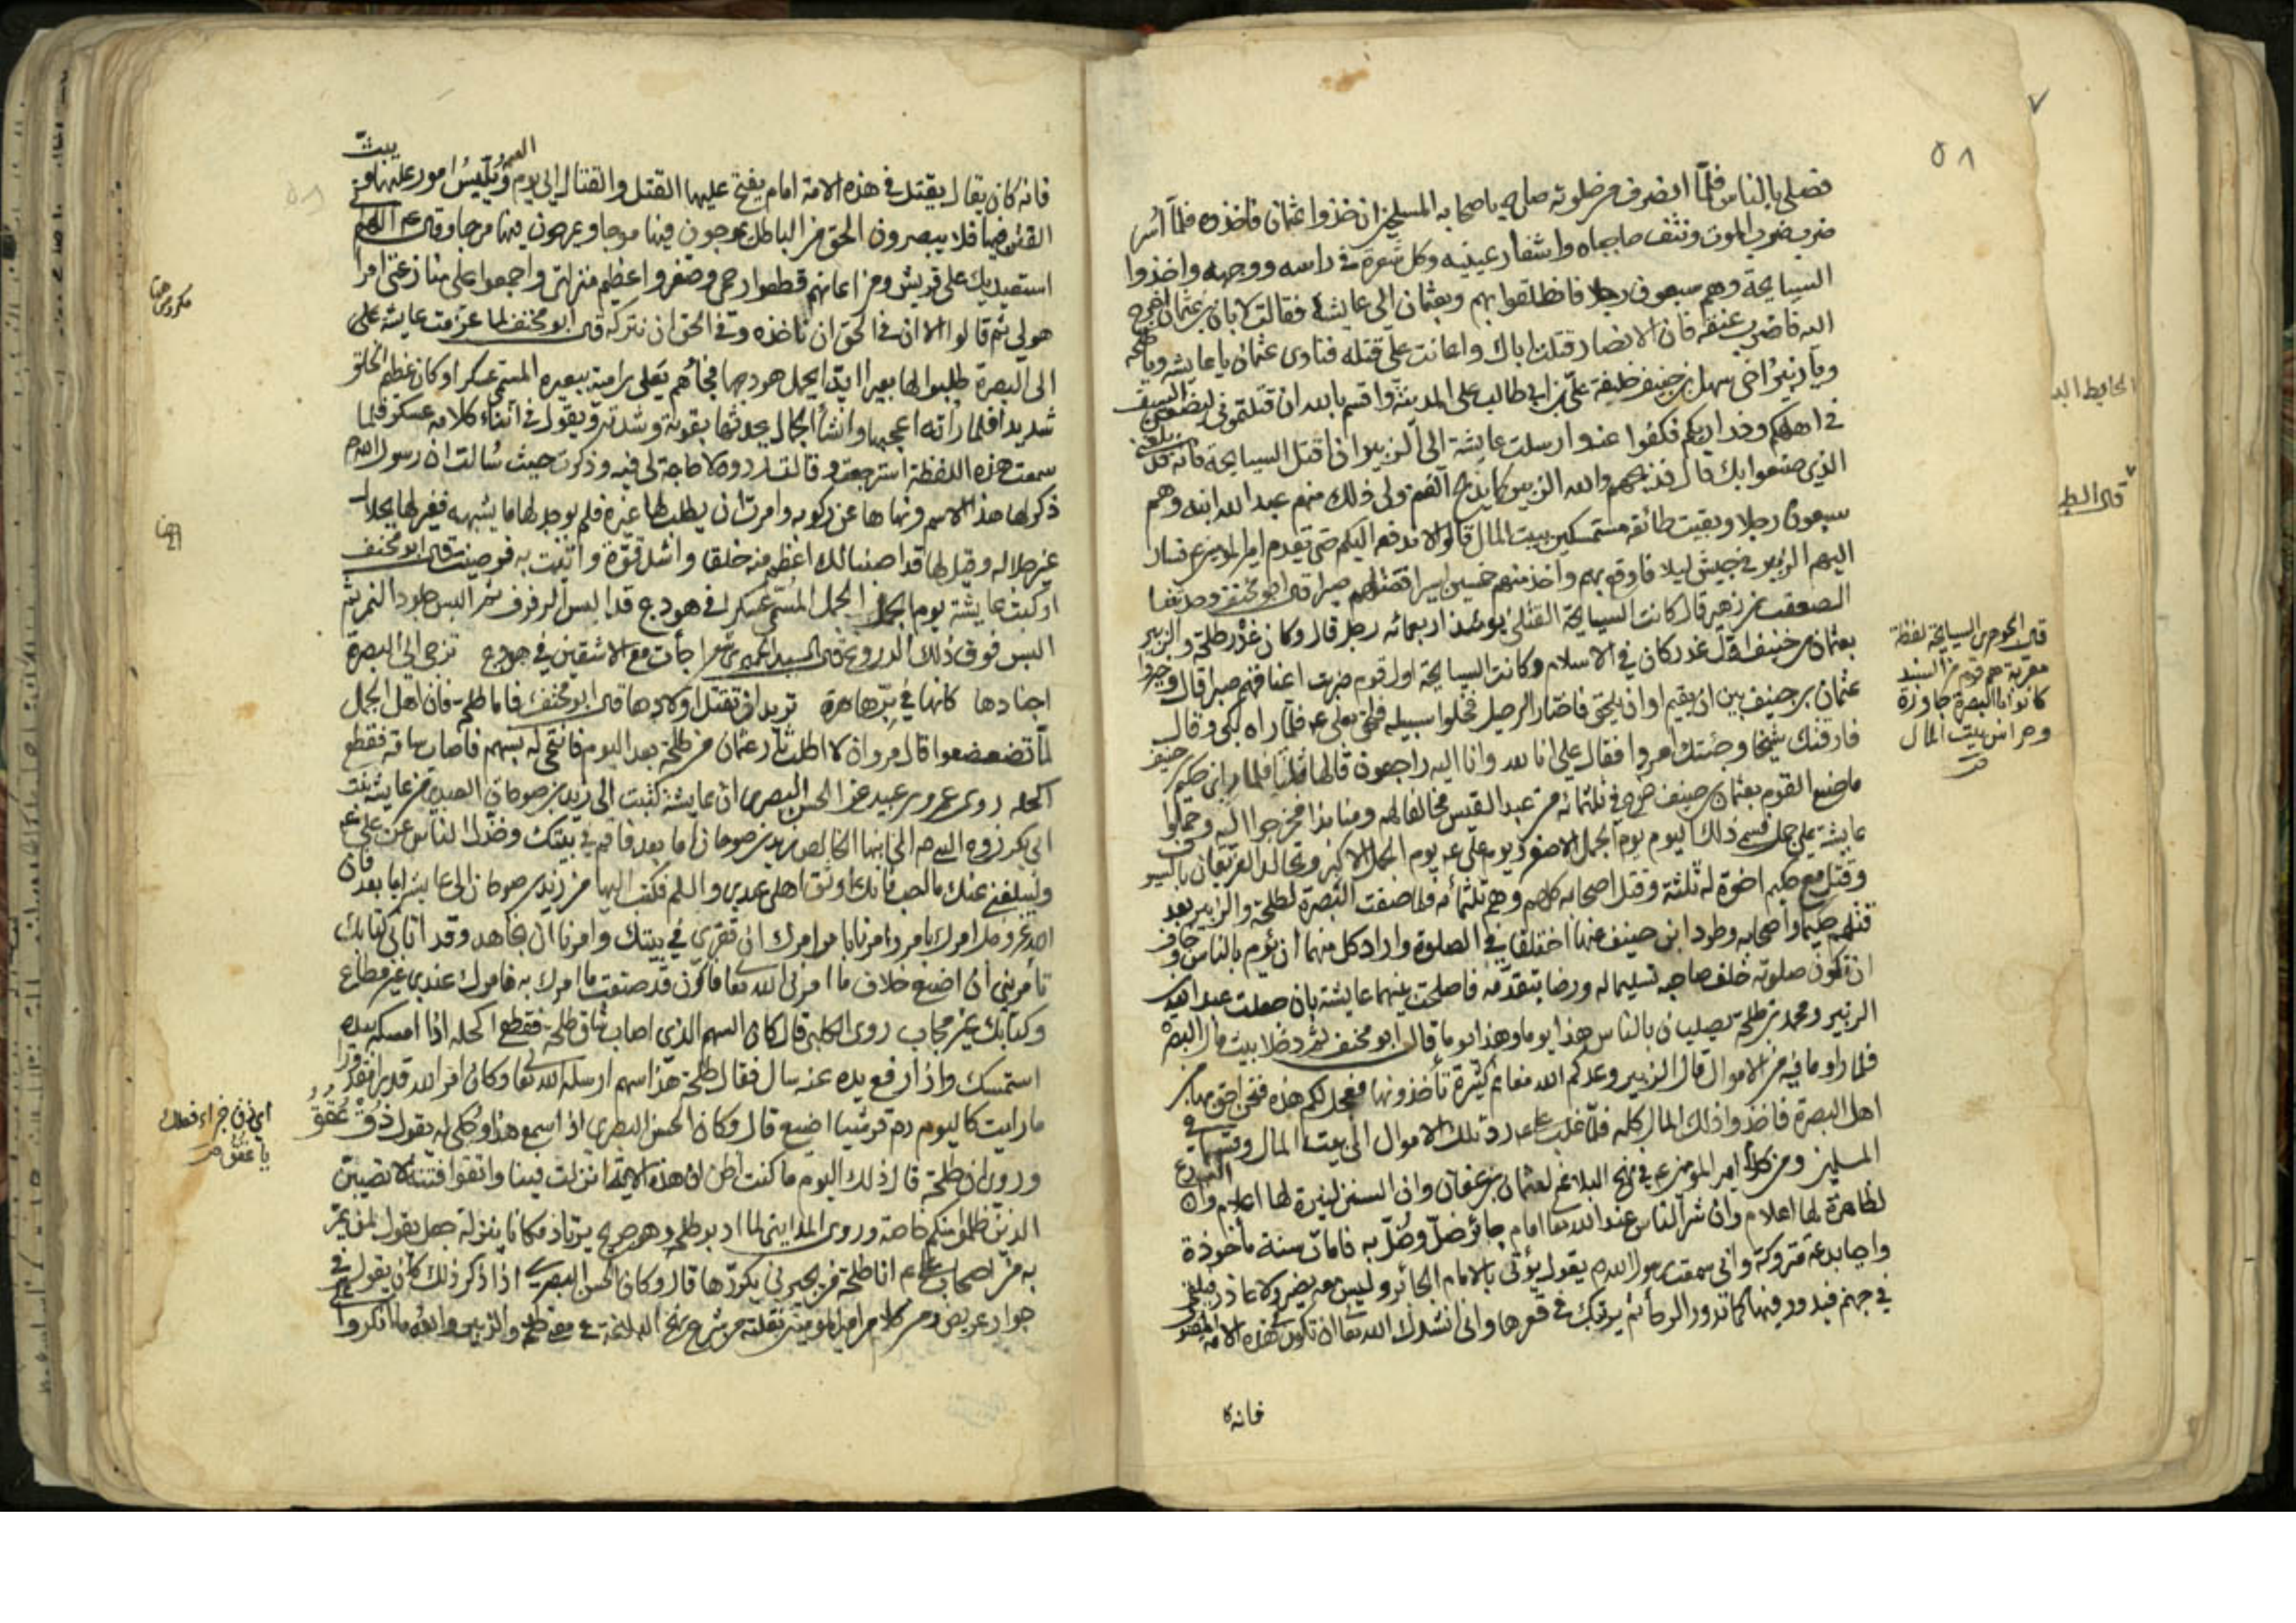 ٥٨
فصلى بالناس فلما انصرف من صلوته صاح باصحابه المسلحين ان خذوا عثمان فاخذوه فلما أسر
ضرب ضرب الموت ونتف حاجباه واشفار عينيه وكل شعرة في راسه ووجهه واخذوا
السبابجة وهم سبعون رجلا فانطلقوا بهم وبعثمان الى عايشة فقالت لابان بن عثمان اخرج
اليه فاضرب عنقه فان الانصار قتلت اباك واعانت على قتله فنادى عثمان يا عايشه ويا طلحه
ويا زبير اخي سهل بن حنيف خليفة علي بن ابي طالب على المدينة واقسم بالله ان قتلتموني ليضعن السيف
في اهلكم فكفوا عنه وارسلت عايشة الى الزبير ان اقتل السبابجة فانه قد بلغني
الذي صنعوا بك قال فذبحهم والله الزبير كما يذبح الغنم ولي ذلك منهم عبد الله ابنه وهم
سبعون رجلا وبقيت طائفه مستمسكين ببيت المال قالوا لا ندفعه اليكم حتى يقدم امير المؤمنين فسار
اليهم الزبير في جيش ليلا فاوقع بهم واخذ منهم خمسين اسيرا فقتلهم صبرا قال ابو مخنف وحدثنا
الصقعب بن زهير قال كانت السبابجة القتلى يومئذ اربعمائه رجل قال وكان غدر طلحة والزبير
بعثمان بن حنيف اول غدر كان في الاسلام وكانت السبابجة اول قوم ضربت اعناقهم صبرا قال وخيروا
عثمان بن حنيف بين ان يقيم او ان يلحق فاختار الرحيل فخلوا سبيله فلحق بعلي ع فلما راه بكى وقال
فارقتك شيخا وجئتك امرد فقال علي انا لله وانا اليه راجعون قالها ثلثا فلما
ما صنع القوم بعثمان بن حنيف خرج في ثلثمائه من عبد القيس مخالفا لهم ومنابذا فخرجوا اليه وحملوا
عايشة على جمل فسمي ذلك اليوم يوم الجمل الاصغر ويوم علي ع يوم الجمل الاكبر وتجالد الفريقان بالسيوف
وقتل مع حكيم اخوة له ثلثة وقتل اصحابه كلهم وهم ثلثمائه فلما صفت البصرة لطلحة والزبير بعد
قتلهم حكيما واصحابه وطرد ابن حنيف عنها اختلفا في الصلوة واراد كل منهما ان يؤم بالناس وخاف
ان تكون صلوته خلف صاحبه تسليما له ورضا بتقدمه فاصلحت بينهما عايشة بان جعلت عبد الله بن
الزبير ومحمد بن طلحة يصليان بالناس هذا يوما وهذا يوما قال ابو مخنف ثم دخلا بيت مال البصرة
فلما راوا ما فيه من الاموال قال الزبير وعدكم الله مغانم كثيرة تأخذونها فعجل لكم هذه فنحن احق بها من
اهل البصرة فاخذوا ذلك المال كله فلما غلب علي ع رد تلك الاموال الى بيت المال وقسمها في
المسلمين ومن كلام امير المؤمنين ع في نهج البلاغة لعثمان بن عفان وان السنن لنيرة لها اعلام وان البدع
لظاهرة لها اعلام وان شر الناس عند الله تعا امام جائر ضل وضل به فامات سنة ماخوذة
واحيا بدعة متروكة واني سمعت رسول الله ص يقول يؤتى بالامام الجائر وليس معه نصير ولا عاذر فيلقى
في جهنم فيدور فيها كما تدور الرحا ثم يرتبك في قعرها واني انشدك الله تعا ان تكون هذه الامة المقتول
فانه كا
قال الجوهري السبابجة لفظة
معربة هم قوم من السند
كانوا بالبصرة جلاوزة
وحراس بيت المال
قال البط
فانه كان يقال يقتل في هذه الامة امام يفتح عليها القتل والقتال الى يوم القيمة ويلبس امور عليها ويبث
الفتن فيها فلا يبصرون الحق من الباطل يموجون فيها موجا ويمرجون فيها مرجا وقال ع اللهم
استعيد بك على قريش ومن اعانهم قطعوا رحمي وصغروا عظيم منزلتي واجمعوا على منازعتي امرا
هو لي ثم قالوا الا ان في الحق ان تاخذه وفي الحق ان تتركه قال ابو مخنف لما عزمت عايشه على
الى البصرة طلبوا لها بعيرا ايدا يحمل هودجها فجاءهم يعلى بن امية ببعيره المسمى عسكرا وكان عظيم الخلق
شديدا فلما راته اعجبها وانشأ الجمال يحدثها بقوته وشدته ويقول في اثناء كلامه عسكر فلما
سمعت هذه اللفظة استرجعت وقالت ردوه لا حاجة لي فيه وذكرت حيث سالت ان رسول الله ص
ذكر لها هذا الاسم ونهاها عن ركوبه وامرت ان يطلب لها غيره فلم يوجد لها ما يشبهه فغير لها بجلال
غير جلاله وقيل لها قد اصبنا لك اعظم منه خلقا واشد قوة واتيت به فرضيت قال ابو مخنف
وركبت عايشة يوم الجمل المسمى عسكرا في هودج قد البس الرفرف ثم البس جلود النمر ثم
البس فوق ذلك الدروع قال السيد الحميري شعر جأت مع الاشقين في هودج تزجي الى البصرة
اجنادها كانها في هرة تريد ان تقتل اولادها قال ابو مخنف فاما طلحة فان اهل الجمل
لما تضعضعوا قال مروان لا اطلب ثار عثمان من طلحة بعد اليوم فانتحى له بسهم فاصاب ساقه فقطع
اكحله روى عمرو بن عبيد عن الحسن البصري ان عايشة كتبت الى زيد بن صوحان العبدي من عايشة بنت
ابي بكر زوجه النبي ص الى ابنها الخالص زيد بن صوحان اما بعد فاقم في بيتك وخذل الناس عن علي ع
وليبلغني عنك ما احب فانك اوثق اهلي عندي والسلم فكتب اليها من زيد بن صوحان الى عايشة اما بعد فان
الله عز وجل امرك بامر وامرنا بامر امرك ان تقري في بيتك وامرنا ان نجاهد وقد اتاني كتابك
تأمريني ان اصنع خلاف ما امرني الله تعا فاكون قد صنعت ما امرك به فامرك عندي غير مطاع
وكتابك غير مجاب روى الكلبي قال كان السهم الذي اصاب ساق طلحة فقطع اكحله اذا امسكه بيده
استمسك واذا رفع يده عنه سال فقال طلحة هذا سهم ارسله الله تعا وكان امر الله قدرا مقدورا
ما رايت كاليوم دم قرشيا اضيع قال وكان الحسن البصري اذا سمع هذا وحكي له يقول ذق عقق
وروى ان طلحة قال ذلك اليوم ما كنت اظن ان هذه الاية انزلت فينا واتقوا فتنة لا تصيبن
الذين ظلموا منكم خاصة وروى المدايني لما ادبر طلحة وهو جريح يرتاد مكانا ينزله جعل يقول لمن يمر
به من اصحاب علي ع انا طلحة من يجيرني يكررها قال وكان الحسن البصري اذا ذكر ذلك كان يقول
جوار عريض ومن كلام امير المؤمنين نقلته من شرح نهج البلاغة في معنى طلحة والزبير والله ما انكروا
اي ذق جزاء فعلك
يا عقق